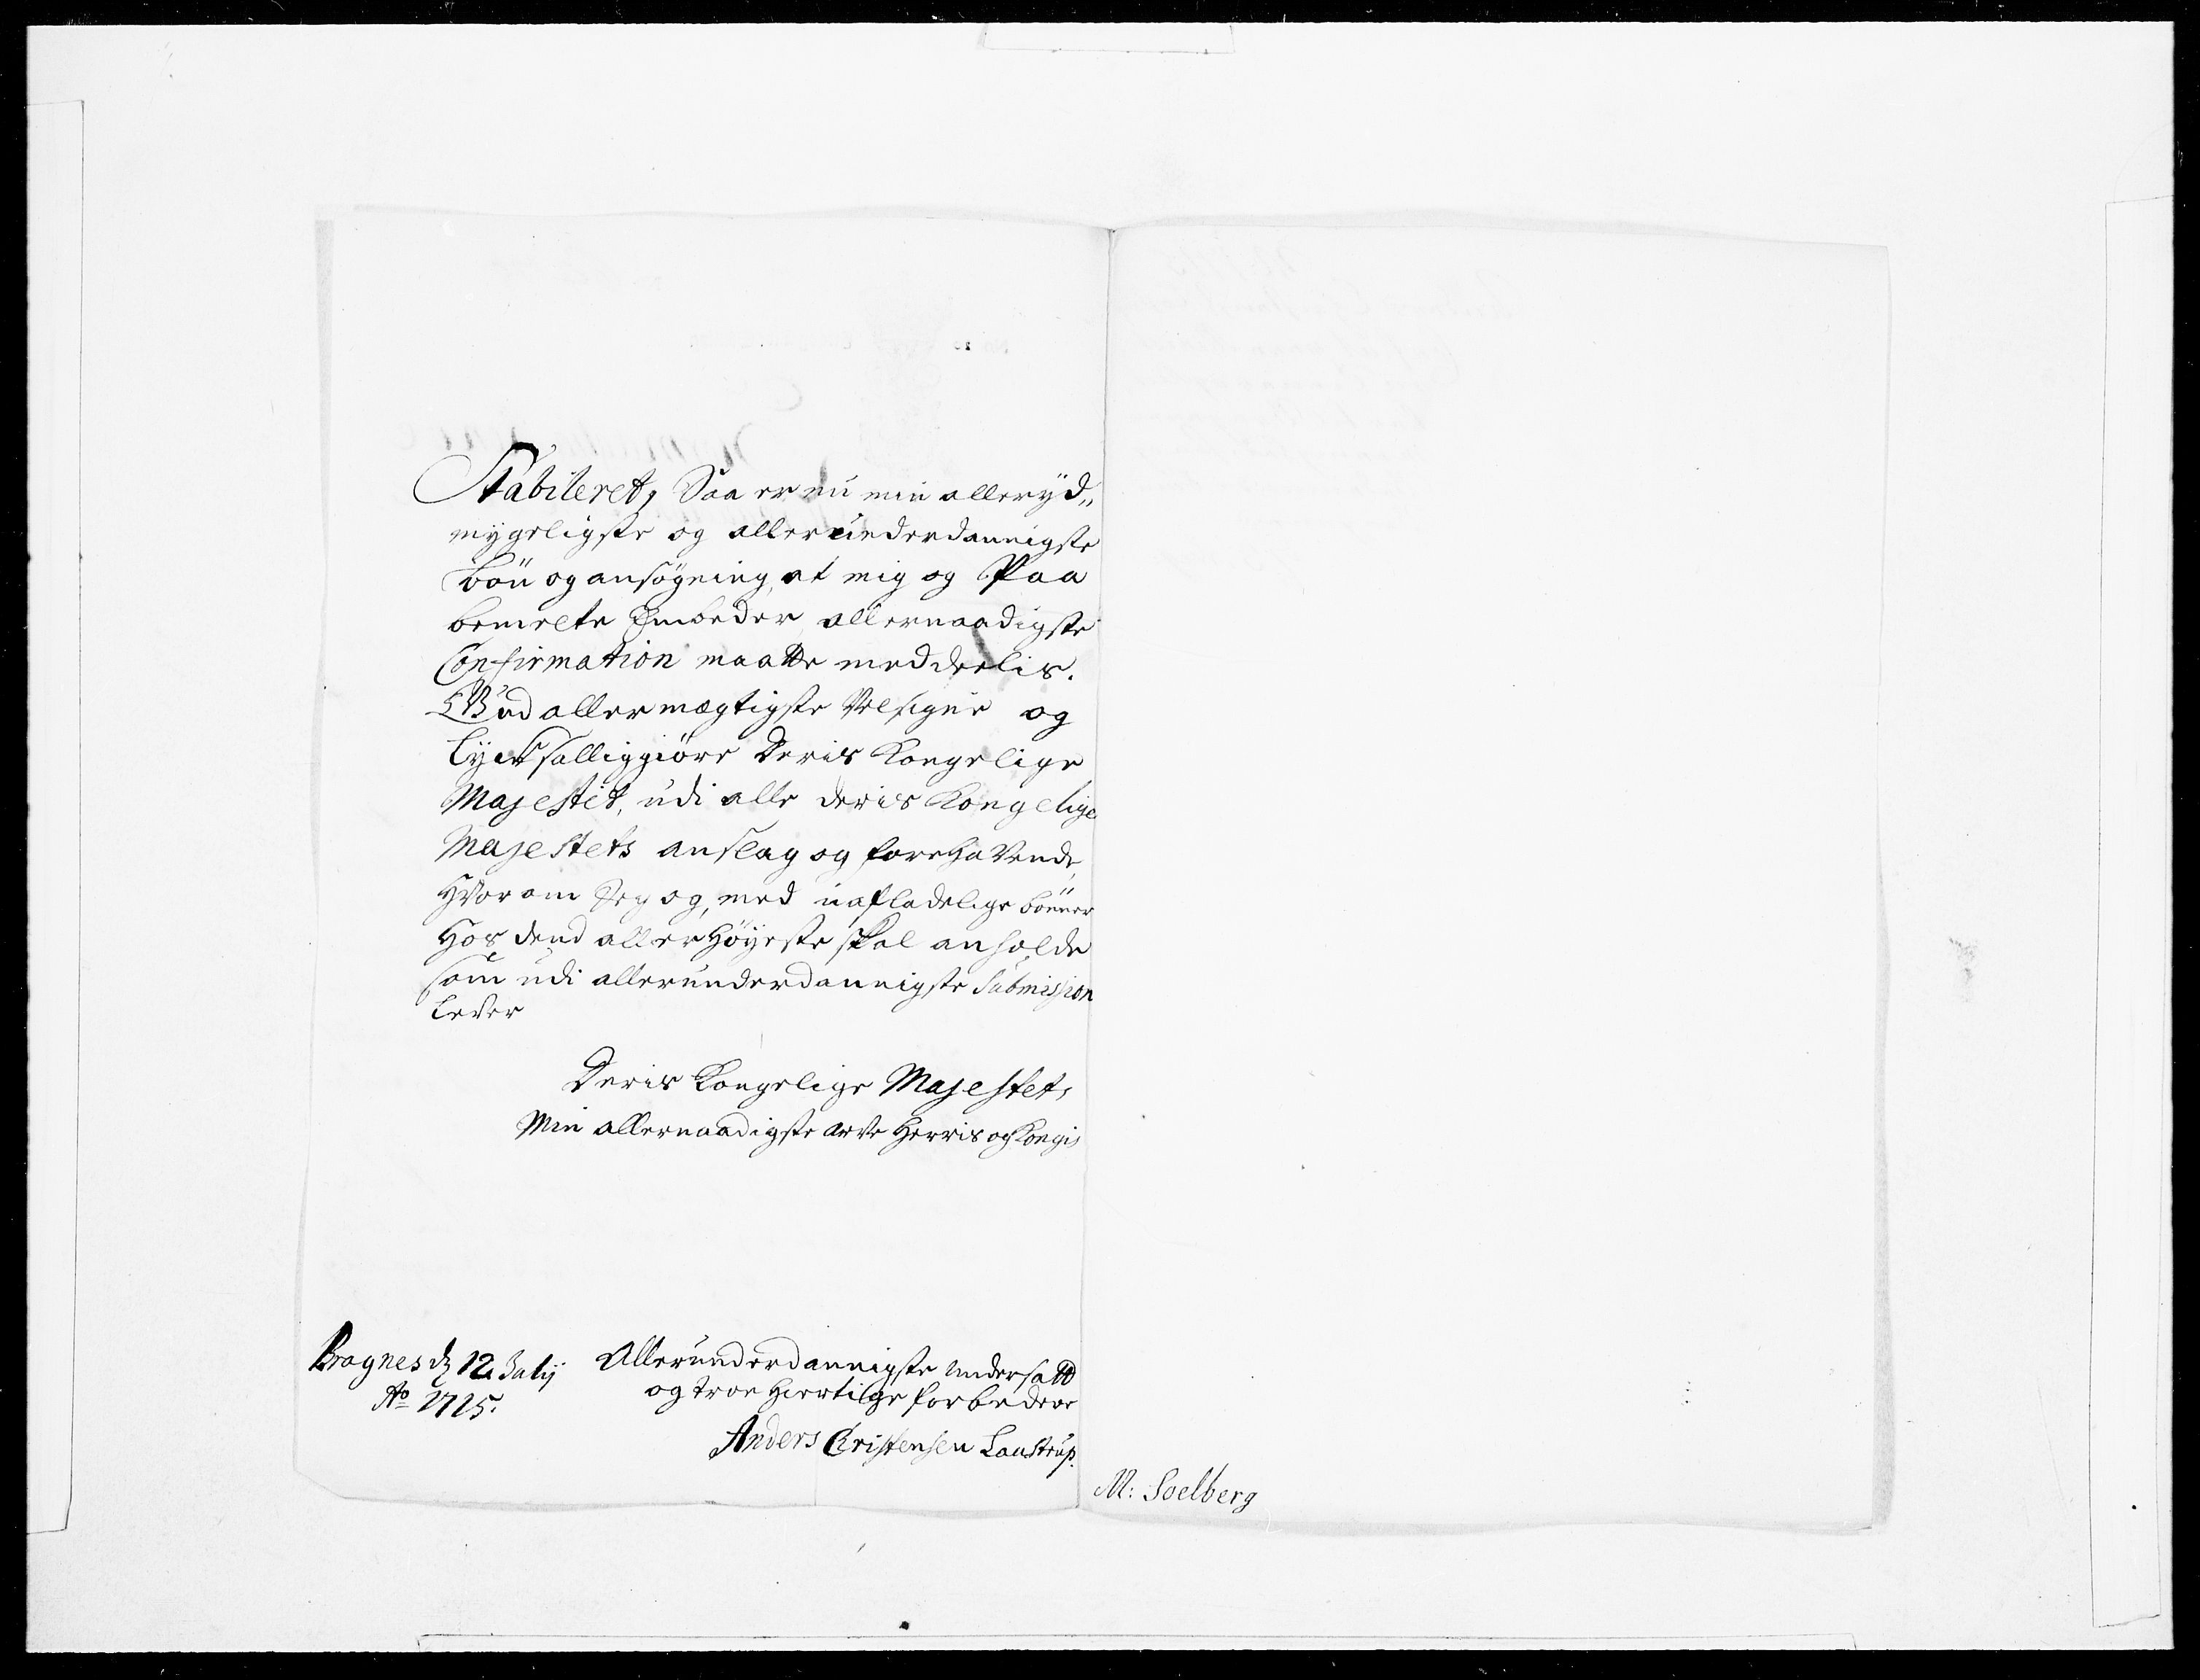 Stabileret, Saa er nu min alleryd„
mygeligste og allerunderdannigste
bön og ansögning, at mig og Paa
bemelte Embeder allernaadigste
Confirmation maatte meddeelis.
Gud allermægtigste Velsigne og
lycksalliggiöre Deris Kongelige
Majestet, udi alle deris Kongelige
Majestets anslag og forehavende,
Hvorom Jeg og, med uafladelige bönner
Hos dend allerHöyeste skal anholde
som udi allerunderdannigste Submission
lever
Deris Kongelige Majestets
Min allernaadigste arve Herris og Kongis
Bragnes d 12 Julij
Ao 1715.
Allerunderdannigste undersatt
og troe Hiertelige forbedere
Anders Cristensen Laustrup.
M: Soelberg